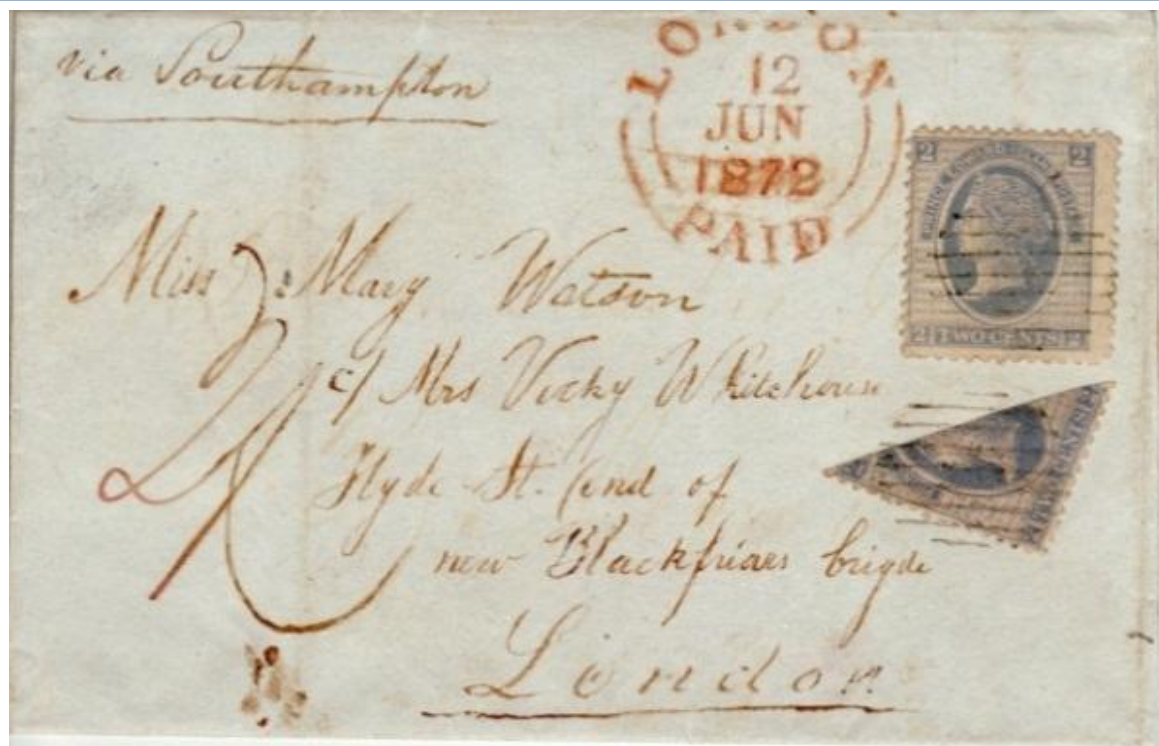 via Southampton
LONDON
12
JUN
1872
PAID
2 2
PRINCE EDWARD ISLAND POSTAGE
2 TWO CENTS 2
Miss Mary Watson
c/ Mrs Vicky Whitehouse
Hyde St. (end of
new Blackfriars brigde
London
CENTS